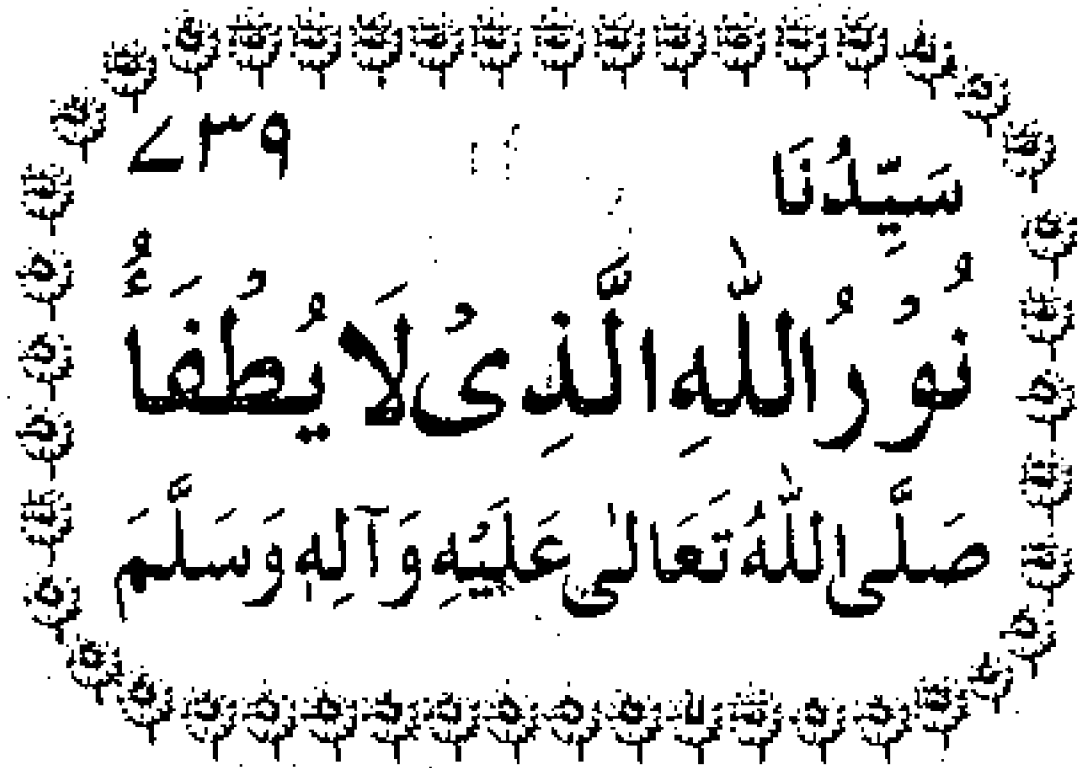 ۷۳۹
سَيِّدُنَا
نُوْرُ اللّٰهِ الَّذِىْ لَا يُطْفَأُ
صَلَّى اللّٰهُ تَعَالىٰ عَلَيْهِ وَآلِهٖ وَسَلَّمَ